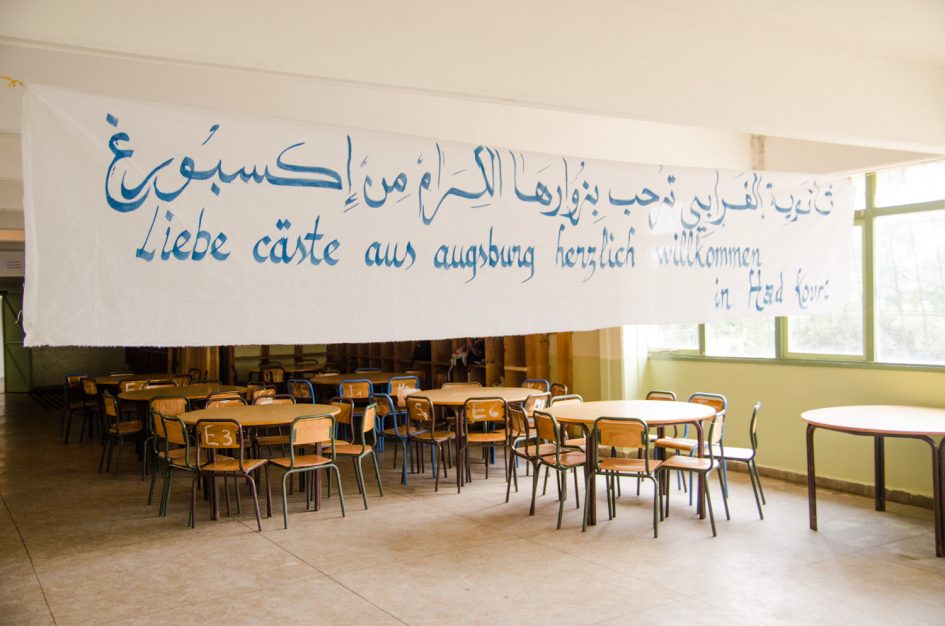 ثانوية الفرابي ترحب بزوارها الكرام من إكسبورغ
Liebe cäste aus augsburg herzlich willkommen
in Had Kourt
E3
E6